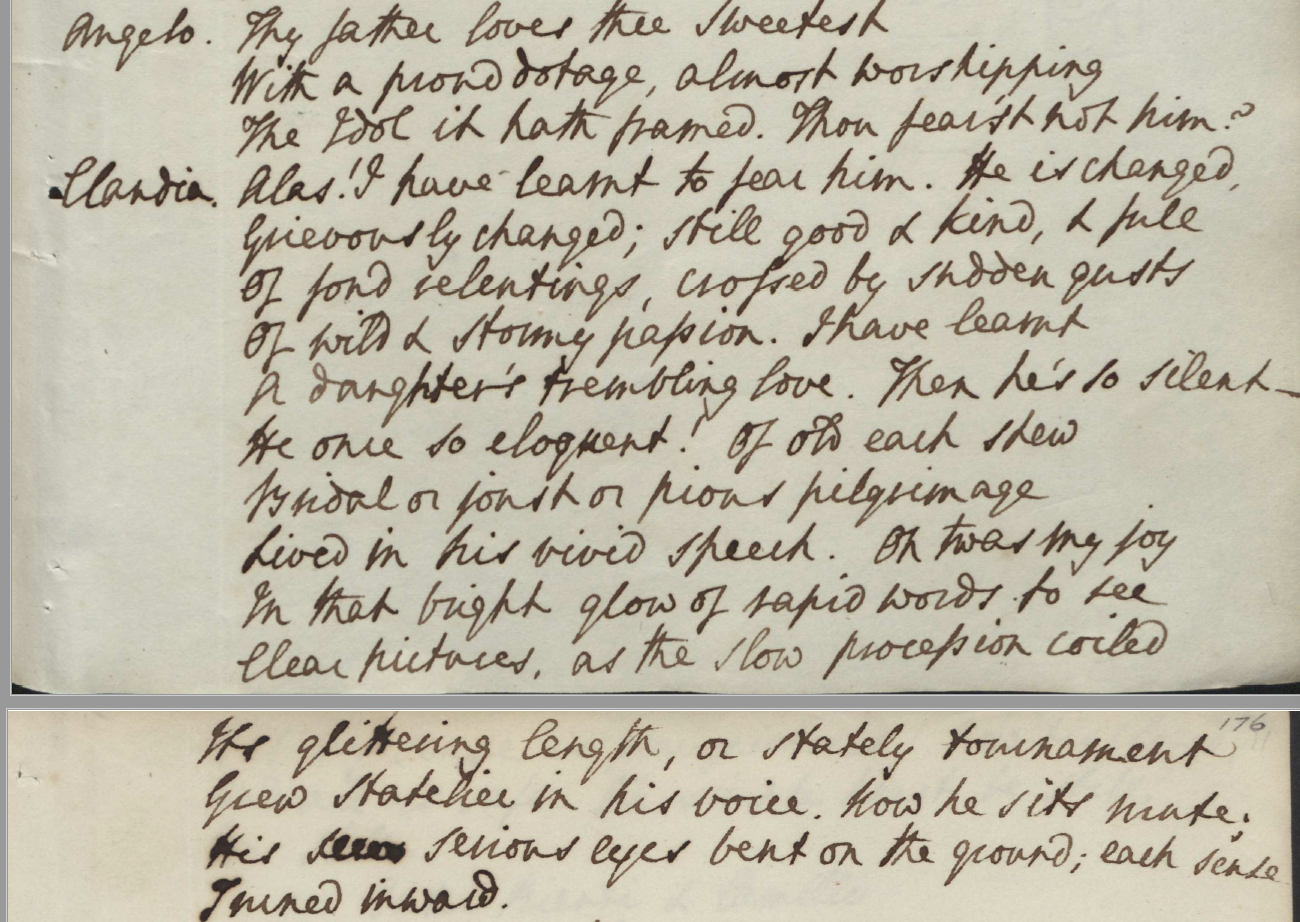 Angelo. Thy father loves thee Sweetest
With a proud dotage, almost worshipping
The Idol it hath framed. Thou fear'st not him?
Claudia. Alas! I have learnt to fear him. He is changed,
Grievously changed; still good & kind, & full
Of fond relentings, crossed by sudden gusts
Of wild & stormy passion. I have learnt
A daughter's trembling love. Then he's so silent—
He once so eloquent! Of old each shew
Bridal or joust or pious pilgrimage
Lived in his vivid speech. Oh twas my joy
In that bright glow of rapid words to see
Clear pictures, as the slow procession coiled
176
Its glittering length, or stately tournament
Grew statelier in his voice. Now he sits mute;
His serious eyes bent on the ground; each sense
Turned inward.